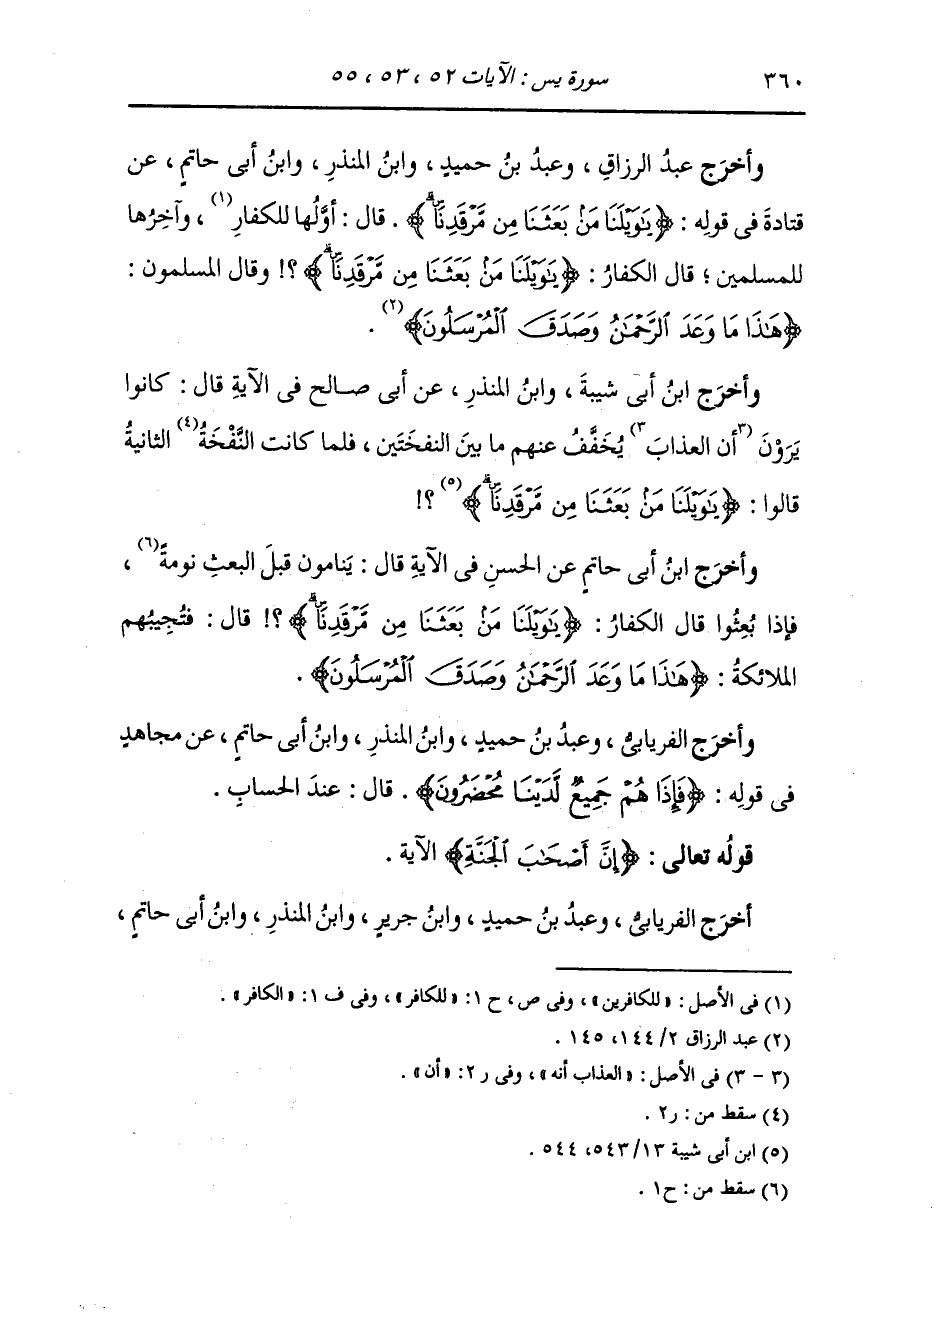 ٣٦٠ سورة يس : الآيات ٥٢ ، ٥٣ ، ٥٥
وأخرَج عبدُ الرزاقِ ، وعبدُ بنُ حميدٍ ، وابنُ المنذرِ ، وابنُ أبى حاتمٍ ، عن
قتادةَ فى قولِه : ﴿يَٰوَيْلَنَا مَنۢ بَعَثَنَا مِن مَّرْقَدِنَاۜۗ﴾ . قال : أوَّلُها للكفارِ(١) ، وآخِرُها
للمسلمين ؛ قال الكفارُ : ﴿يَٰوَيْلَنَا مَنۢ بَعَثَنَا مِن مَّرْقَدِنَاۜۗ﴾ ؟! وقال المسلمون :
﴿هَٰذَا مَا وَعَدَ ٱلرَّحْمَٰنُ وَصَدَقَ ٱلْمُرْسَلُونَ﴾(٢) .
وأخرَج ابنُ أبى شيبةَ ، وابنُ المنذرِ ، عن أبى صالح فى الآيةِ قال : كانوا
يَرَوْنَ (٣أن العذابَ٣) يُخَفَّفُ عنهم ما بينَ النفختَين ، فلما كانت النَّفْخَةُ(٤) الثانيةُ
قالوا : ﴿يَٰوَيْلَنَا مَنۢ بَعَثَنَا مِن مَّرْقَدِنَاۜۗ﴾(٥) ؟!
وأخرَج ابنُ أبى حاتمٍ عن الحسنِ فى الآيةِ قال : يَنامون قبلَ البعثِ نومةً(٦) ،
فإذا بُعِثُوا قال الكفارُ : ﴿يَٰوَيْلَنَا مَنۢ بَعَثَنَا مِن مَّرْقَدِنَاۜۗ﴾ ؟! قال : فتُجِيبُهم
الملائكةُ : ﴿هَٰذَا مَا وَعَدَ ٱلرَّحْمَٰنُ وَصَدَقَ ٱلْمُرْسَلُونَ﴾ .
وأخرَج الفريابىُّ ، وعبدُ بنُ حميدٍ ، وابنُ المنذرِ ، وابنُ أبى حاتمٍ ، عن مجاهدٍ
فى قولِه : ﴿فَإِذَا هُمْ جَمِيعٌ لَّدَيْنَا مُحْضَرُونَ﴾ . قال : عندَ الحسابِ .
قولُه تعالى : ﴿إِنَّ أَصْحَٰبَ ٱلْجَنَّةِ﴾ الآية .
أخرَج الفريابىُّ ، وعبدُ بنُ حميدٍ ، وابنُ جريرٍ ، وابنُ المنذرِ ، وابنُ أبى حاتمٍ ،
(١) فى الأصل : «للكافرين» ، وفى ص، ح ١: «للكافر» ، وفى ف ١: «الكافر» .
(٢) عبد الرزاق ٢/ ١٤٤، ١٤٥ .
(٣ - ٣) فى الأصل : «العذاب أنه» ، وفى ر ٢: «أن» .
(٤) سقط من : ر٢ .
(٥) ابن أبى شيبة ١٣/ ٥٤٣، ٥٤٤ .
(٦) سقط من : ح١ .